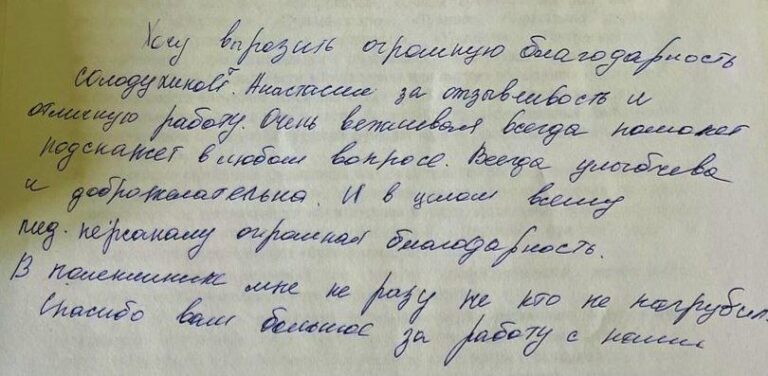 Хочу выразить огромную благодарность
солодухиной. Анастасие за отзывчивость и
отличную работу. Очень вежливая всегда поможет
подскажет в любом вопросе. Всегда улыбчева
и доброжелательна. И в целом всему
мед. персаналу огромная благодарность.
В полекленике мне не разу не кто не нагрубил.
Спасибо вам большое за работу с нами